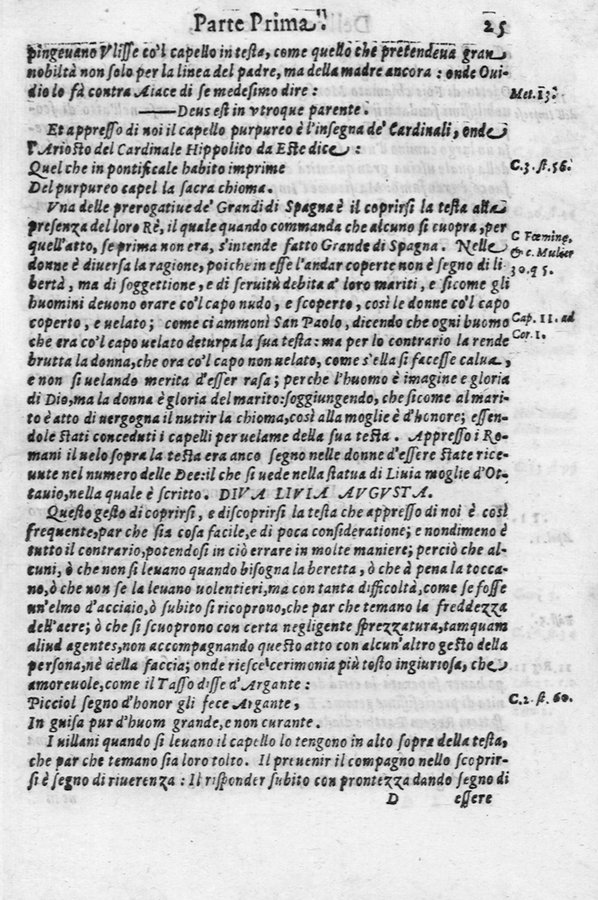 Parte Prima. 25
pingeuano Vlisse co'l capello in testa, come quello che pretendeua gran
nobiltà non solo per la linea del padre, ma della madre ancora : onde Oui-
dio lo fà contra Aiace di se medesimo dire : Met. 13.
——Deus est in vtroque parente.
Et appresso di noi il capello purpureo è l'insegna de' Cardinali, onde
l'Ariosto del Cardinale Hippolito da Este dice :
Quel che in pontificale habito imprime C. 3. st. 56.
Del purpureo capel la sacra chioma.
Vna delle prerogatiue de' Grandi di Spagna è il coprirsi la testa alla
presenza del loro Rè, il quale quando commanda che alcuno si cuopra, per
quell'atto, se prima non era, s'intende fatto Grande di Spagna. Nelle C. Fœminę,
donne è diuersa la ragione, poiche in esse l'andar coperte non è segno di li- & c. Mulier
bertà, ma di soggettione, e di seruitù debita a' loro mariti, e sicome gli 30. q 5.
huomini deuono orare co'l capo nudo, e scoperto, così le donne co'l capo
coperto, e uelato ; come ci ammonì San Paolo, dicendo che ogni huomo Cap. 11. ad
che ora co'l capo uelato deturpa la sua testa : ma per lo contrario la rende Cor. 1.
brutta la donna, che ora co'l capo non uelato, come s'ella si facesse calua,
e non si uelando merita d'esser rasa ; perche l'huomo è imagine e gloria
di Dio, ma la donna è gloria del marito: soggiungendo, che sicome al mari-
to è atto di uergogna il nutrir la chioma, così alla moglie è d'honore; essen-
dole stati conceduti i capelli per uelame della sua testa . Appresso i Ro-
mani il velo sopra la testa era anco segno nelle donne d'essere state rice-
uute nel numero delle Dee: il che si vede nella statua di Liuia moglie d'Ot-
tauio, nella quale è scritto. DIVA LIVIA AVGVSTA.
Questo gesto di coprirsi, e discoprirsi la testa che appresso di noi è così
frequente, par che sia cosa facile, e di poca consideratione; e nondimeno è
tutto il contrario, potendosi in ciò errare in molte maniere; perciò che al-
cuni, ò che non si leuano quando bisogna la beretta, ò che à pena la tocca-
no, ò che non se la leuano uolentieri, ma con tanta difficoltà, come se fosse
un'elmo d'acciaio, ò subito si ricoprono, che par che temano la freddezza
dell'aere; ò che si scuoprono con certa negligente sprezzatura, tamquam
aliud agentes, non accompagnando questo atto con alcun'altro gesto della
persona, nè della faccia; onde riesce cerimonia più tosto ingiuriosa, che
amoreuole, come il Tasso disse d'Argante :
Picciol segno d'honor gli fece Argante, C. 2. st. 60.
In guisa pur d'huom grande, e non curante.
I uillani quando si leuano il capello lo tengono in alto sopra della testa,
che par che temano sia loro tolto. Il preuenir il compagno nello scoprir-
si è segno di riuerenza : Il risponder subito con prontezza dando segno di
D essere